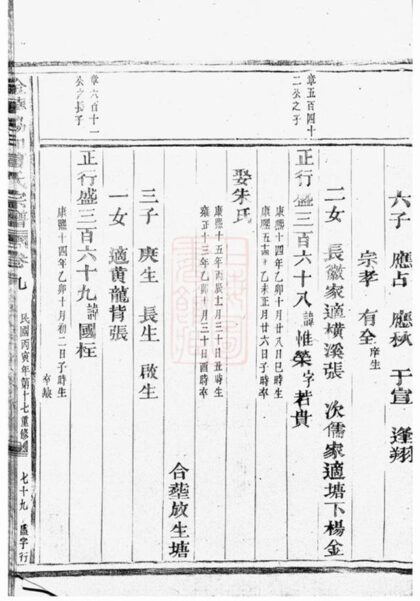 六子 應占 應秋 于宣 逢翔
宗孝 有全 庠生
二女 長徽家適橫溪張 次儒家適塘下楊金
章五百四十
二公之子
正行盛三百六十八 諱 惟榮 字 若貴
康熙十四年乙卯十月廿八日巳時生
康熙五十四年乙未正月廿六日子時卒
娶朱氏
康熙十五年丙辰十月三十日丑時生
雍正十三年乙卯十月三十日酉時卒
合塟放生塘
三子 庚生 長生 啟生
一女 適黃龍背張
章六百十一
公之長子
正行盛三百六十九 諱 國柱
康熙十四年乙卯十月初二日子時生
卒缺
氏宗譜 卷九 民國丙寅年第十七重修 七十九 字行